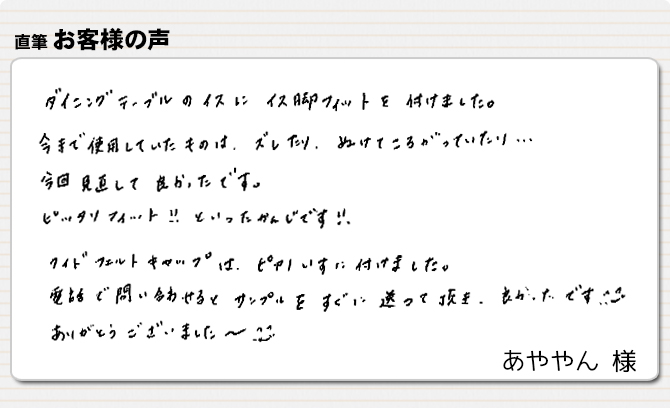 直筆 お客様の声
ダイニングテーブルのイスに イス脚フィットを 付けました。
今まで使用していたものは、ズレたり、ぬけてころがっていたり…
今回 見直して 良かったです。
ピッタリフィット!! といったかんじです!!
ワイドフェルトキャップは、ピアノいすに付けました。
電話で問い合わせると サンプルを すぐに 送って頂き、良かったです
ありがとうございました〜
あややん 様